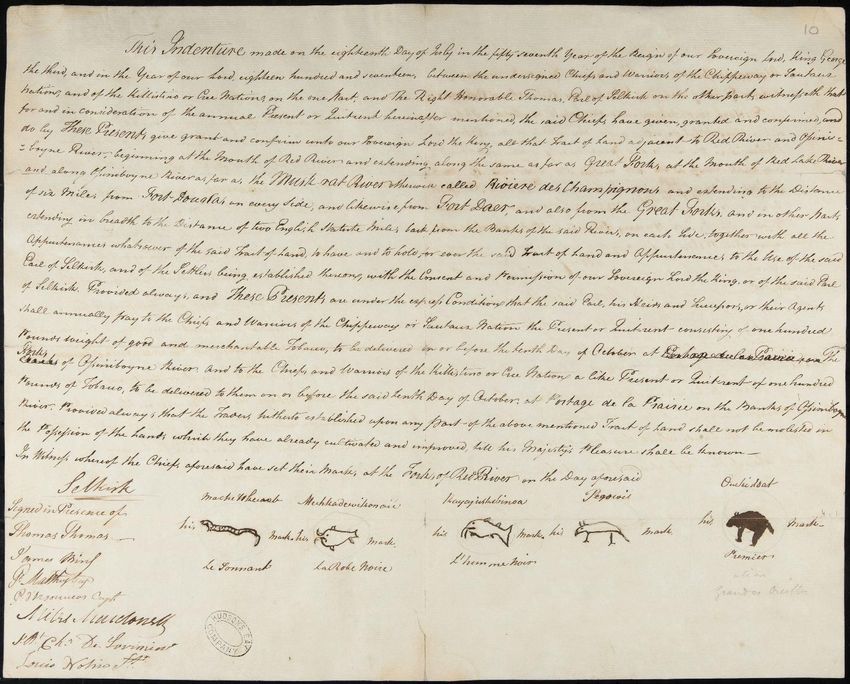 10
This Indenture made on the eighteenth Day of July in the fifty seventh Year of the Reign of our Sovereign Lord, King George
the third, and in the Year of our Lord eighteen hundred and seventeen, between the undersigned Chiefs and Warriors of the Chippeway or Sautaux
Nation, and of the Killistino or Cree Nation, on the one Part, and The Right Honorable Thomas, Earl of Selkirk on the other Part, witnesseth, that
for and in consideration of the annual Present or Quitrent hereinafter mentioned, the said Chiefs have given, granted and confirmed, and
do by These Presents give grant and confirm unto our Sovereign Lord the King, all that Tract of Land adjacent to Red River and Opinis-
-boyne River, beginning at the Mouth of Red River and extending, along the same as far as Great Forks, at the Mouth of Red Lake River
and along Opiniboyne River as far as the Musk rat River otherwise called Rivière des Champignons and extending to the Distance
of six Miles from Fort Douglas on every Side, and likewise from Fort Daer, and also from the Great Forks and in other Parts
extending in breadth to the Distance of two English Statute Miles back from the Banks of the said Rivers, on each Side, together with all the
Appurtenances whatsoever of the said Tract of Land, to have and to hold, for ever the said Tract of Land and Appurtenances to the Use of the said
Earl of Selkirk, and of the Settlers being established thereon, with the Consent and Permission of our Sovereign Lord the King, or of the said Earl
of Selkirk. Provided always, and These Presents are under the express Condition, that the said Earl, his Heirs and Successors, or their Agents
shall annually pay to the Chiefs and Warriors of the Chippeway or Sautaux Nation the Present or Quitrent consisting of one hundred
Pounds weight of good and merchantable Tobacco, to be delivered on or before the tenth Day of October at Portage de la Prairie The
Forks of Opiniboyne River and to the Chiefs and Warriors of the Killistino or Cree Nation, a like Present or Quitrent of one hundred
Pounds of Tobacco, to be delivered to them on or before the said tenth Day of October, at Portage de la Prairie on the Banks of Opiniboyne
River. Provided always, that the Traders hitherto established upon any Part of the above mentioned Tract of Land shall not be molested in
the Possession of the Lands which they have already cultivated and improved, till his Majesty's Pleasure shall be known
In Witness whereof the Chiefs aforesaid have set their Marks, at the Forks of Red River on the Day aforesaid
Selkirk
Signed in Presence of
Thomas Thomas
James Bird
Miles Macdonell
Mache Wheseab
his mark
Le Sonnant
Mechkadewikonaie
his mark
La Robe Noire
Kayajieskebinoa
his mark
L'homme Noir
Pegowis
his mark
Ouckidoat
his mark
Premier
alias
Grandes Oreilles
HUDSON'S BAY
COMPANY